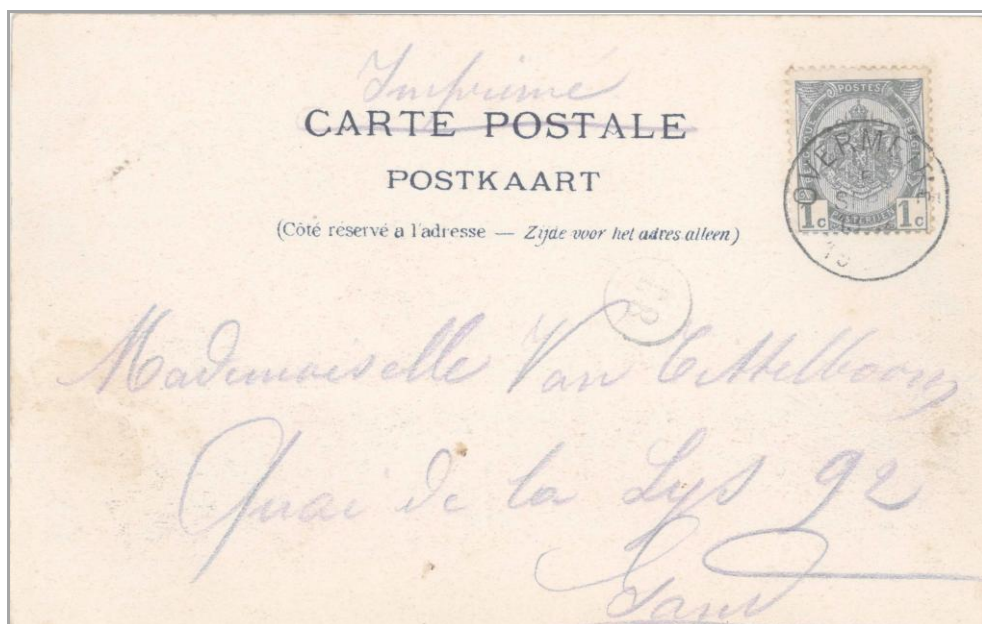 Imprimé
CARTE POSTALE
POSTKAART
(Côté réservé a l'adresse — Zijde voor het adres alleen)
POSTES
1c 1c
POSTERIJEN
Mademoiselle Van
Quai de la Lys 92
Gand